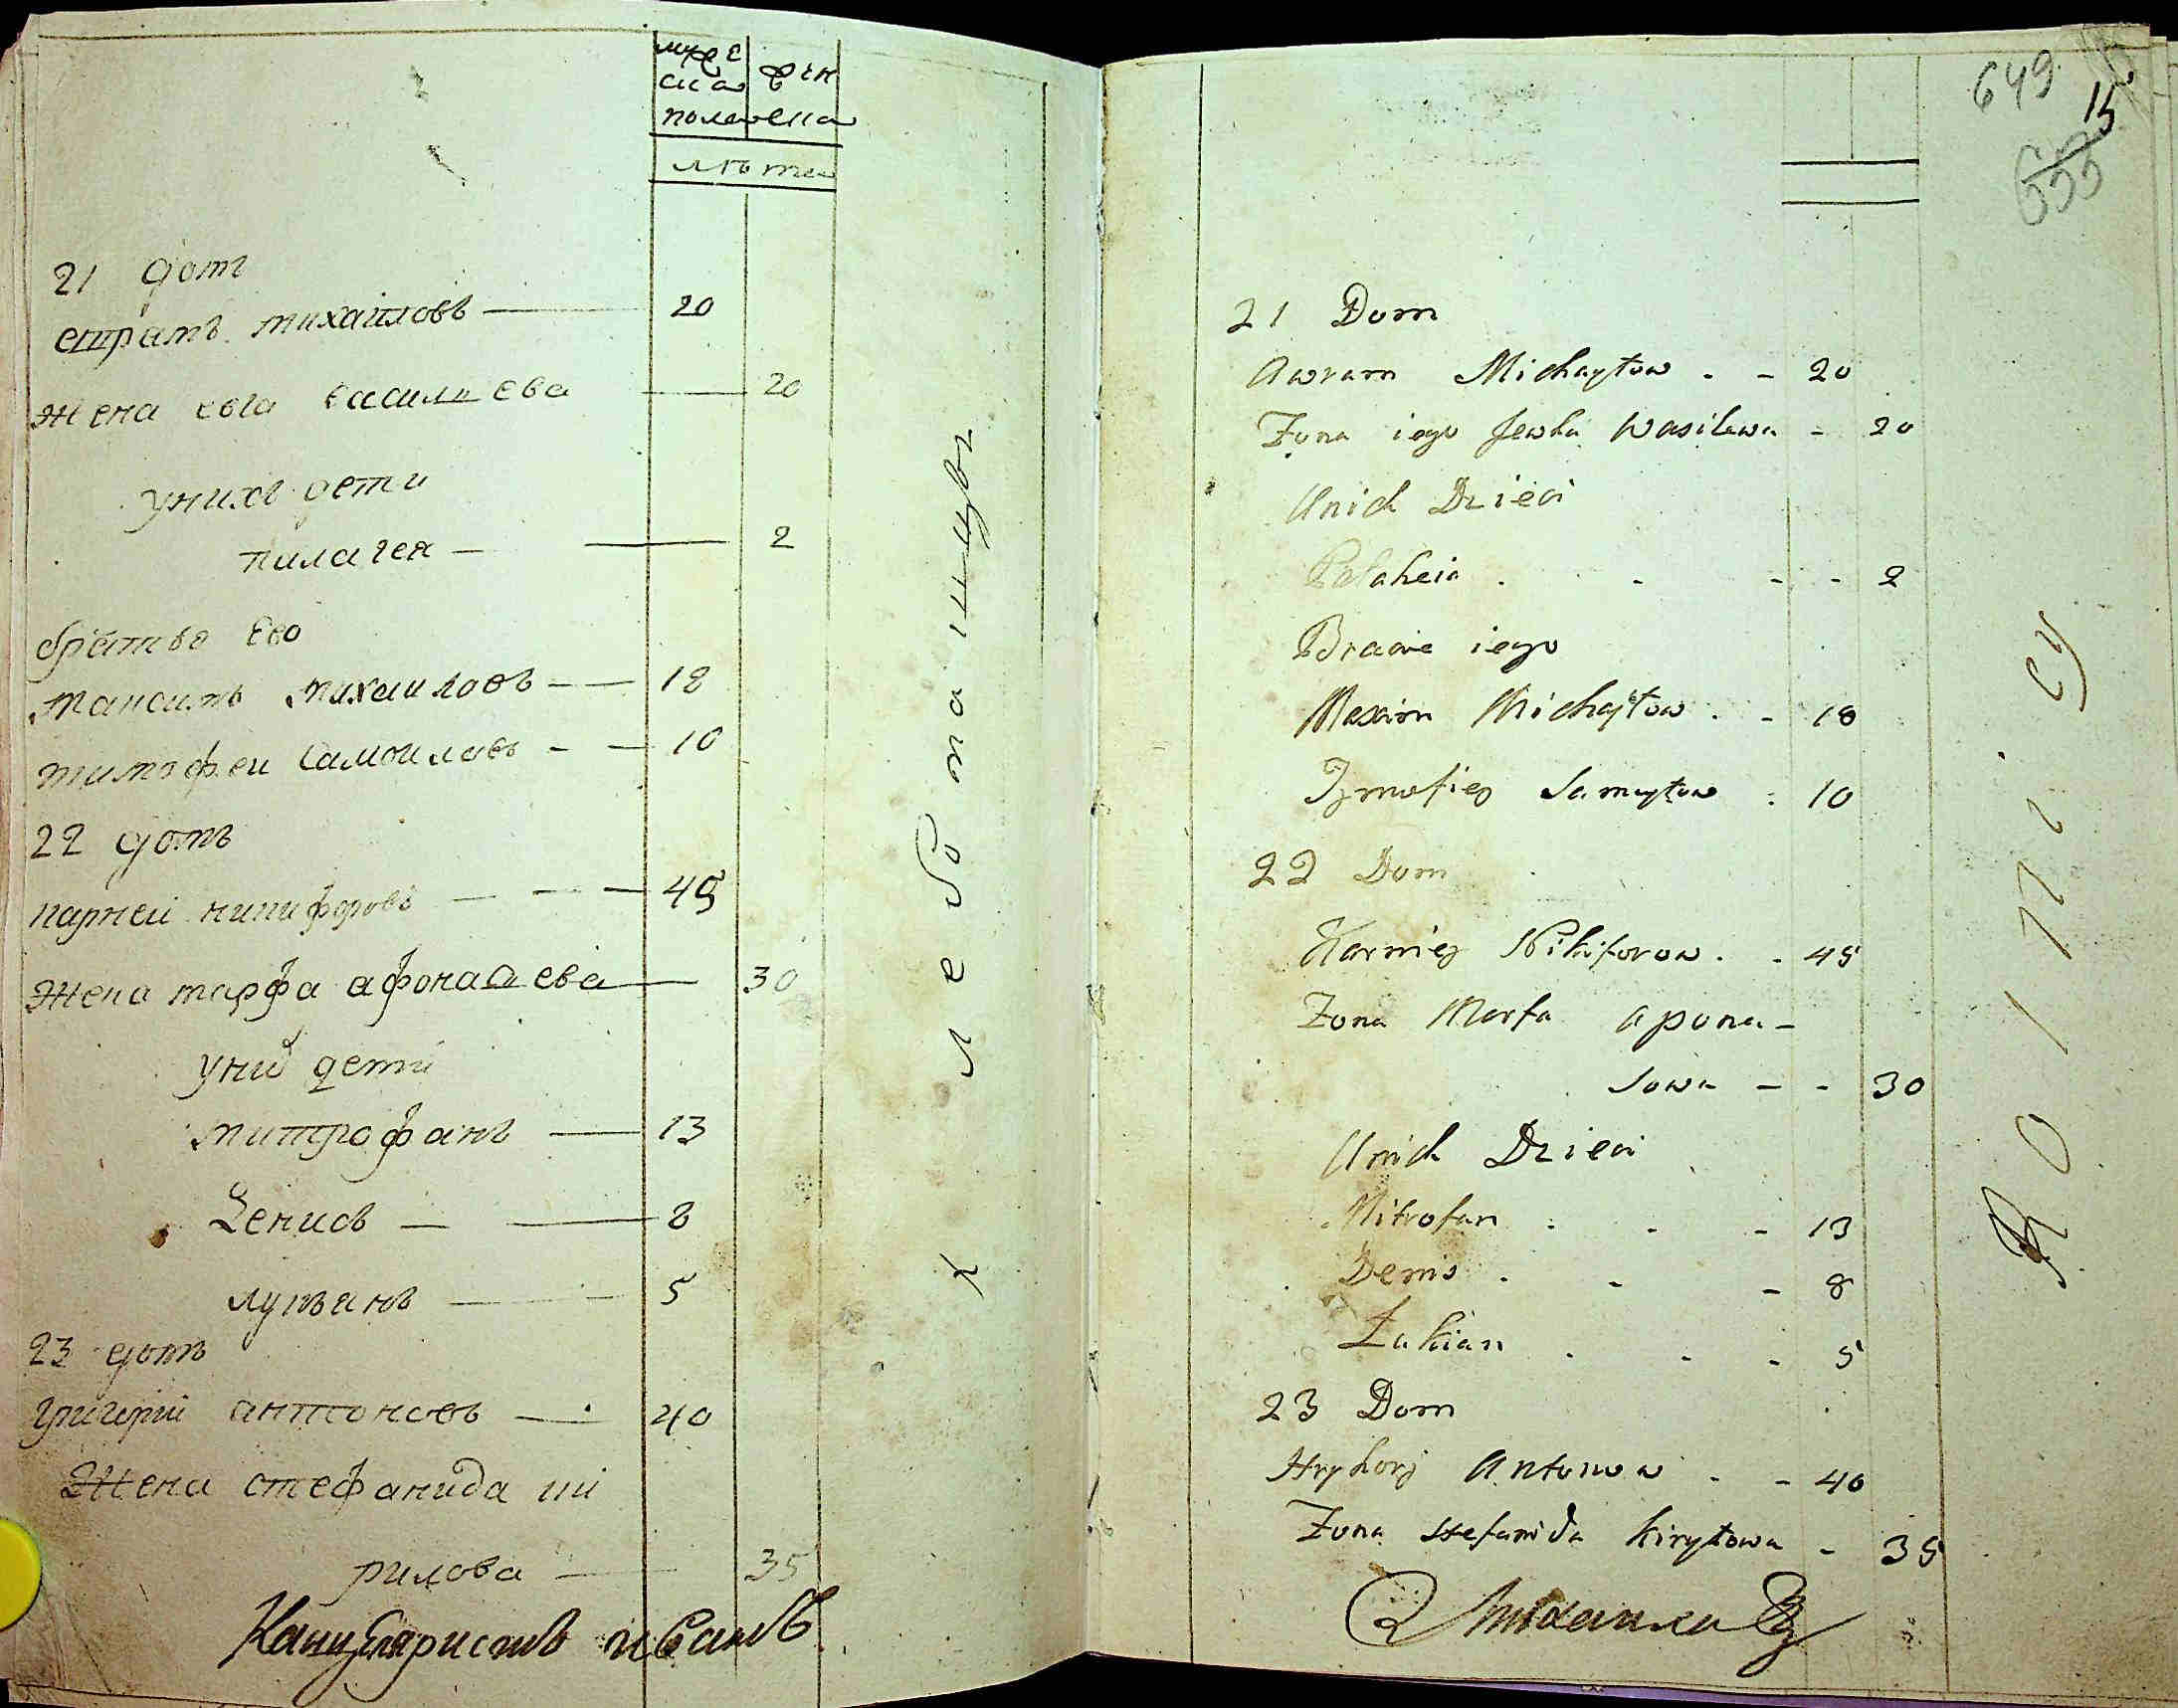 муже
ска
жен
пола
ска
лѣта
21 домъ
михаиловъ 20
жена ева васильева 20
у нихъ дети
пилагея 2
братья ево
максимъ михаиловъ 18
тимофеи самоиловъ 10
22 домъ
карней никифоровъ 45
жена марфа афонасаева 30
у них дети
митрофанъ 13
Денисъ 8
лукъянъ 5
23 домъ
григорий антоновъ 40
Жена стефанида ки
рилова 35
Канцеляристъ иванъ
649
15
21 Dom
Awram Michayłow 20
Zona iego Jewka Wasilewa 20
Unich Dzieci
Pałaheia 2
Bracie iego
Maxim Michayłow 18
Tymofiey Samuyłow 10
22 Dom
Karniey Nikiforow 45
Zona Marfa Apona-
sowa 30
Unich Dzieci
Mitrofan 13
Denis 8
Łukian 5
23 Dom
Hryhory Antonow 40
Zona Stefanida Kiryłowa 35